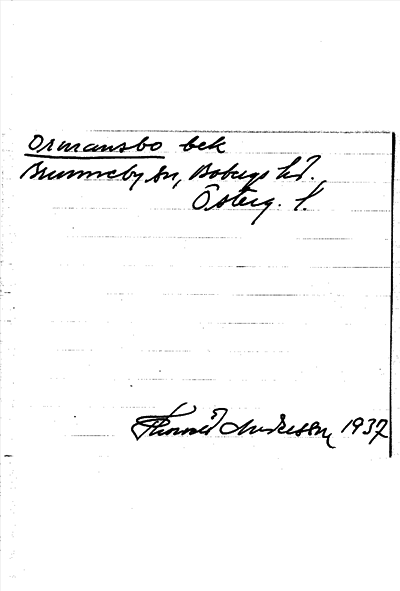 Ormansbo bek
Brunneby sn, Bobergs hd.
Österg. l.
Thorvald Andersson 1937